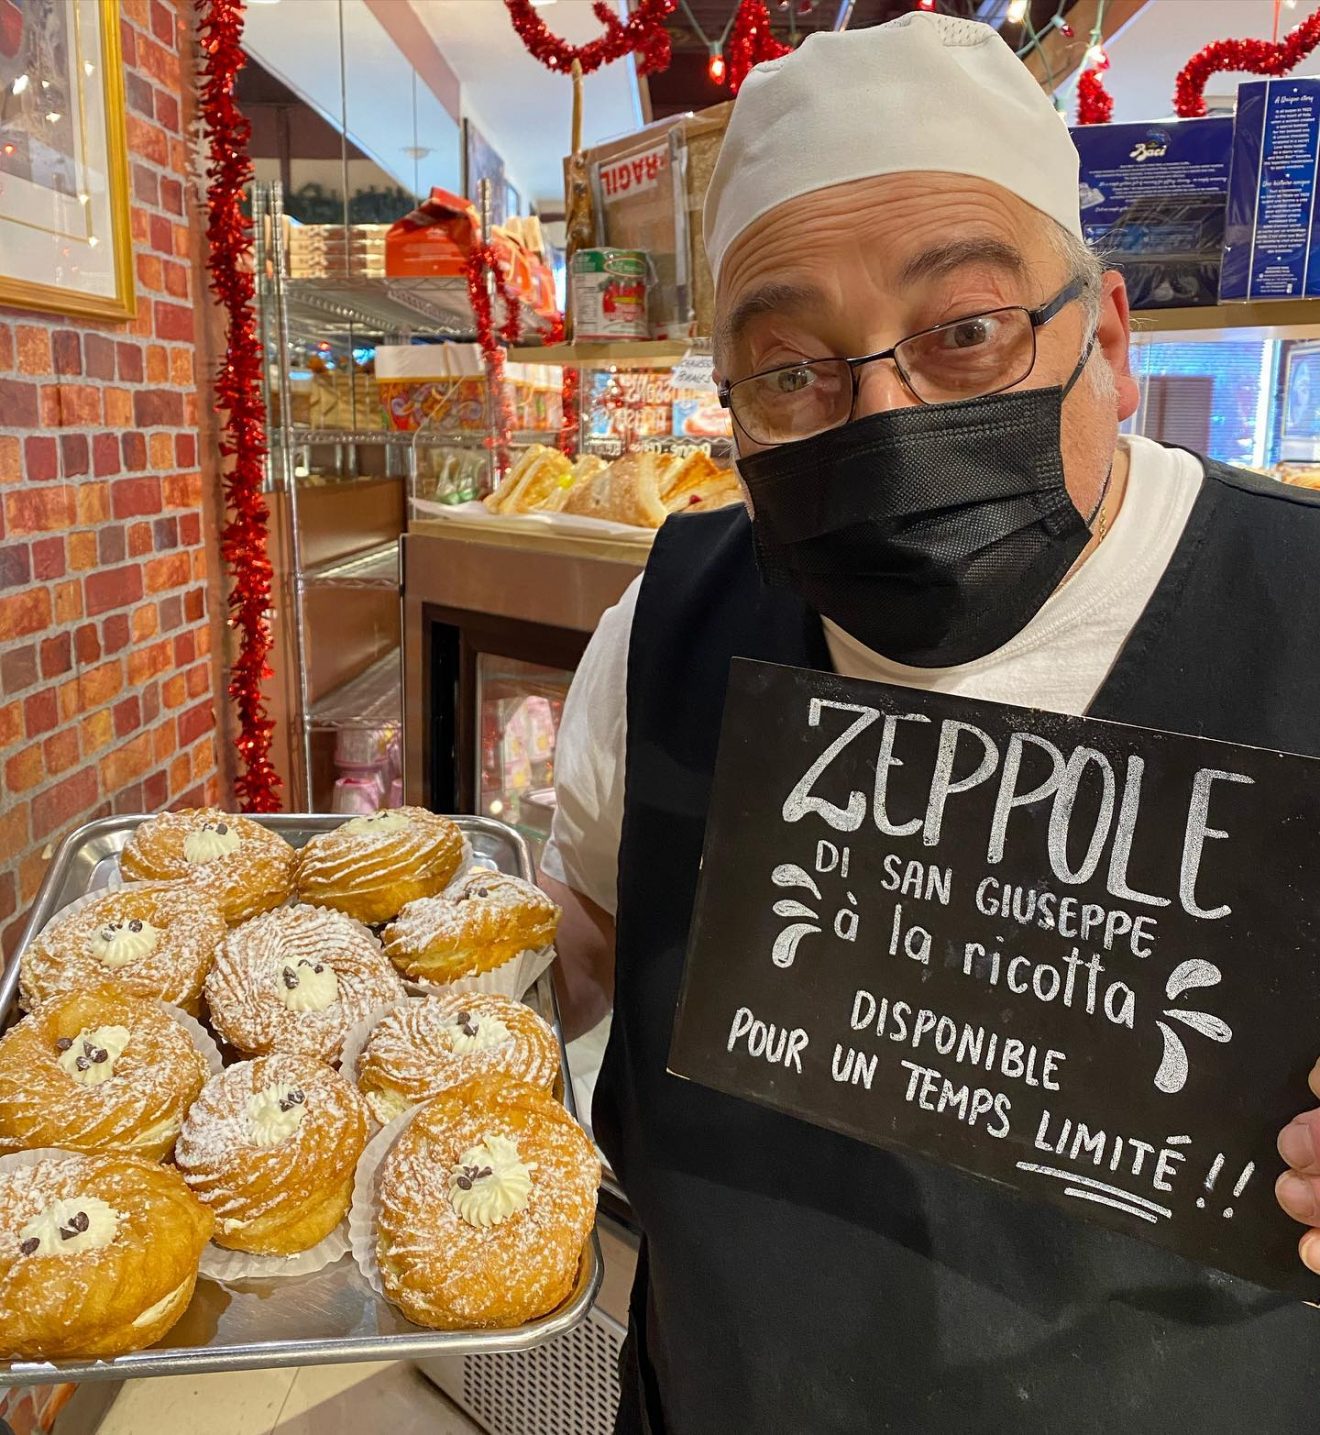 FRAGIL
Baci
A Unique story
ZEPPOLE
DI SAN GIUSEPPE
à la ricotta
DISPONIBLE
POUR UN TEMPS LIMITÉ !!